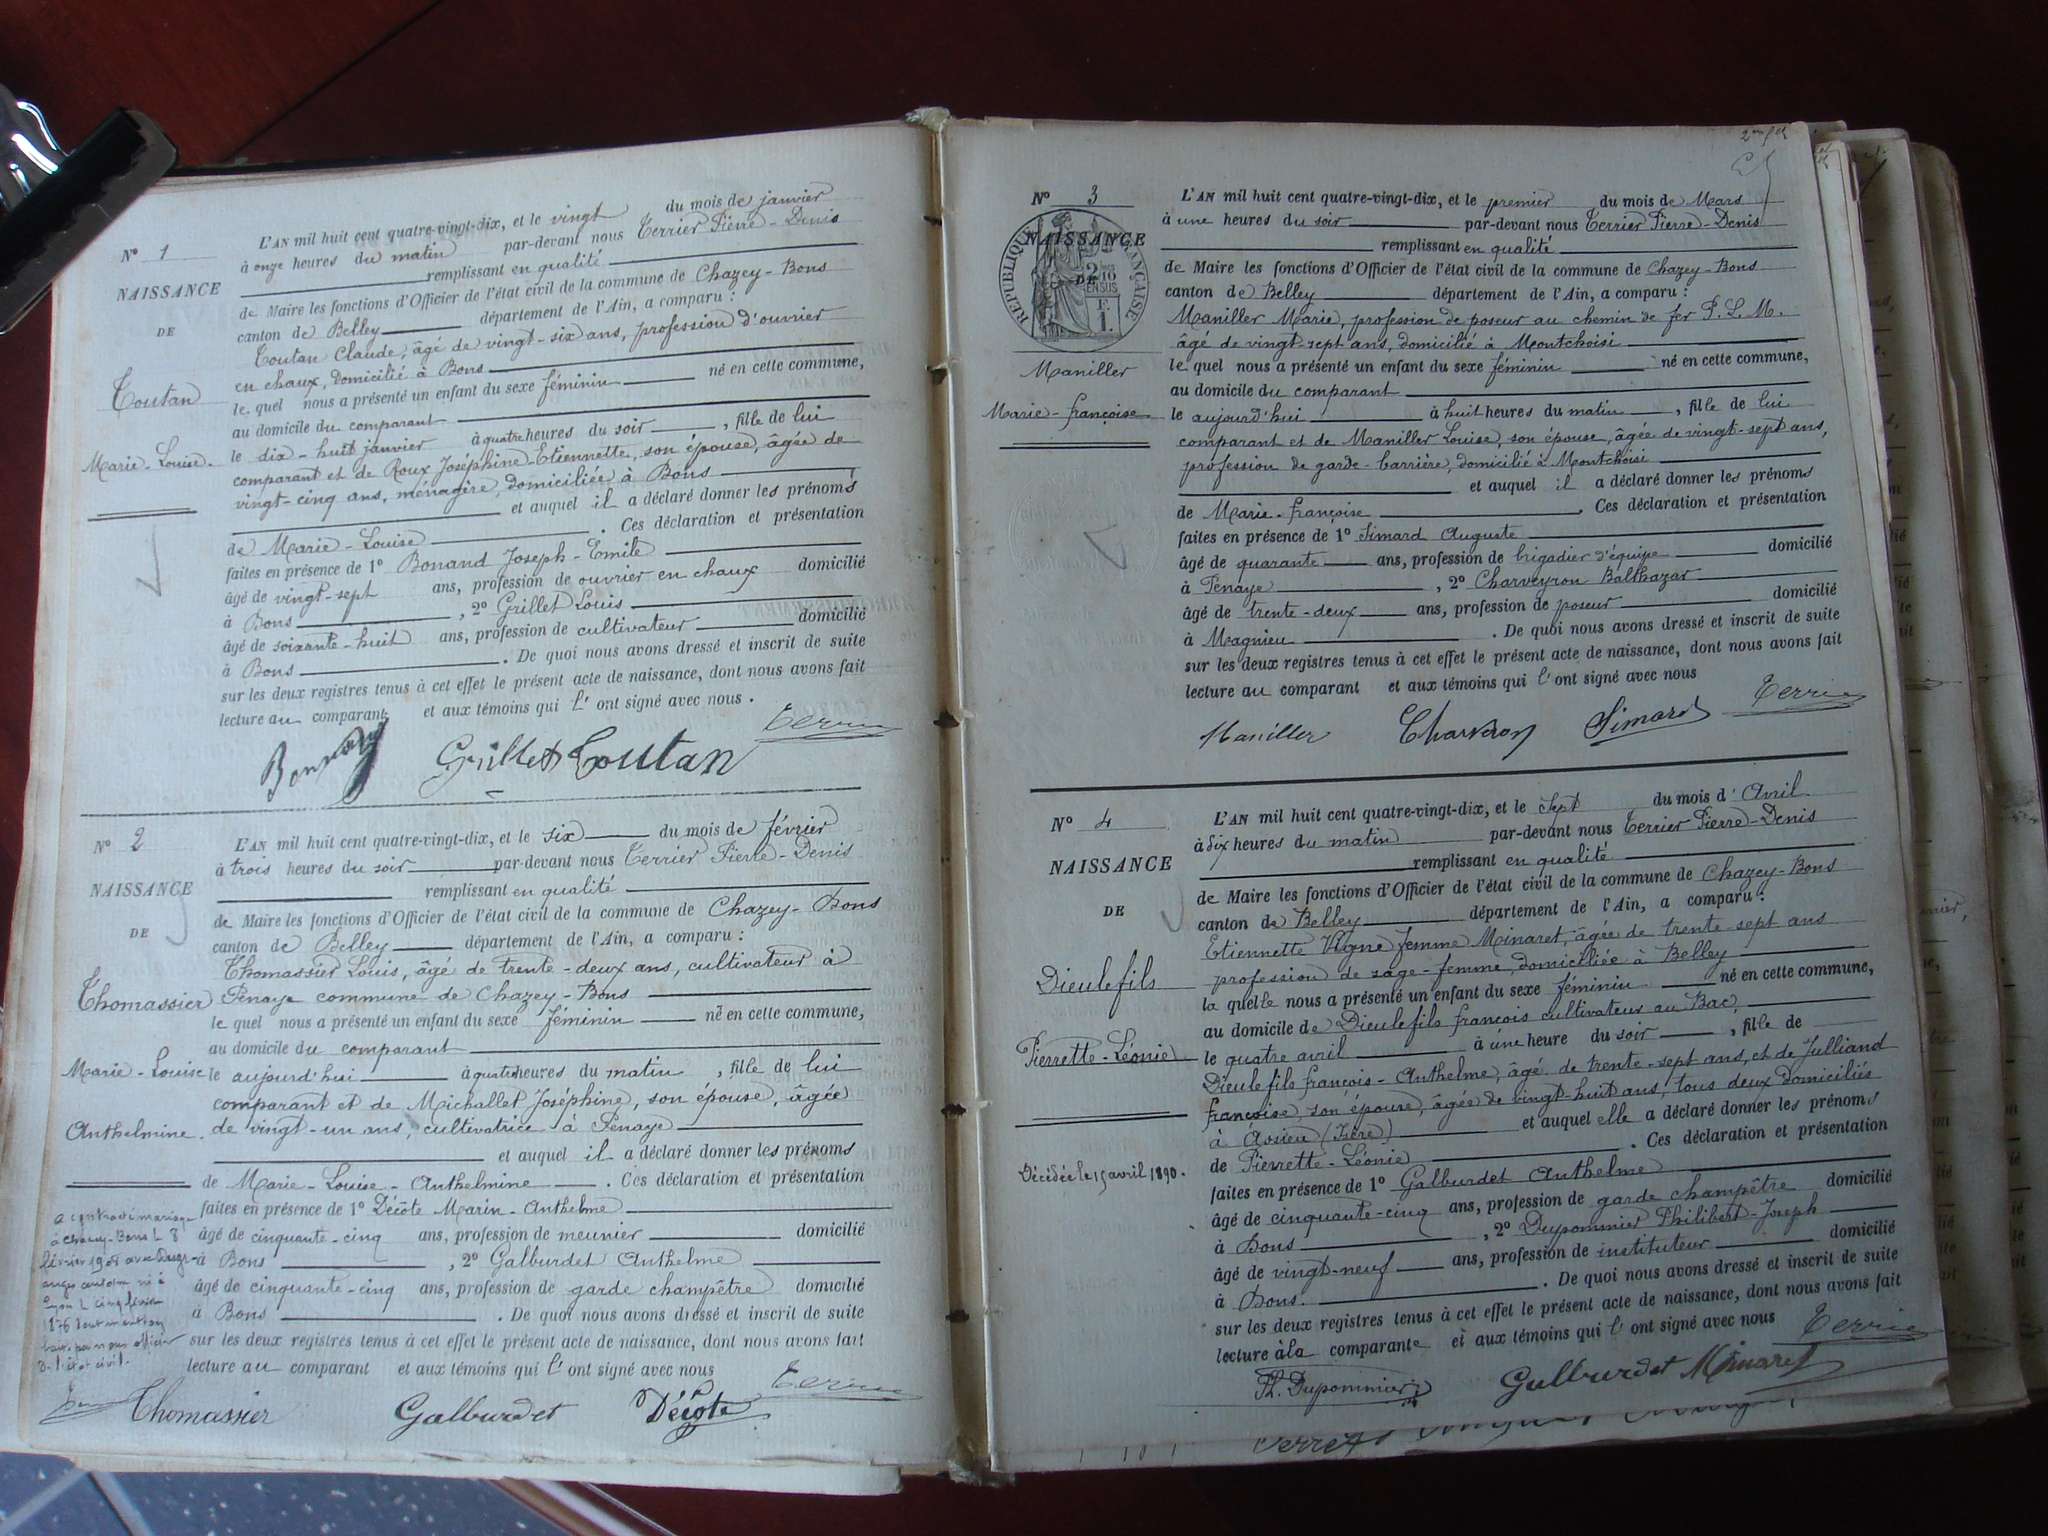 N° 1
NAISSANCE
DE
Toutan
Marie-Louise.
L'AN mil huit cent quatre-vingt-dix, et le vingt du mois de janvier
à onze heures du matin par-devant nous Terrier Pierre-Denis
remplissant en qualité
de Maire les fonctions d'Officier de l'état civil de la commune de Chazey-Bons
canton de Belley département de l'Ain, a comparu :
Toutan Claude, âgé de vingt-six ans, profession d'ouvrier
en chaux, domicilié à Bons
le quel nous a présenté un enfant du sexe féminin né en cette commune,
au domicile du comparant
le dix-huit janvier à quatre heures du soir, fille de lui
comparant et de Roux Joséphine-Etiennette, son épouse, âgée de
vingt-cinq ans, ménagère, domiciliée à Bons
et auquel il a déclaré donner les prénoms
de Marie-Louise. Ces déclaration et présentation
faites en présence de 1° Bonand Joseph-Emile
âgé de vingt-sept ans, profession de ouvrier en chaux domicilié
à Bons, 2° Grillet Louis
âgé de soixante-huit ans, profession de cultivateur domicilié
à Bons. De quoi nous avons dressé et inscrit de suite
sur les deux registres tenus à cet effet le présent acte de naissance, dont nous avons fait
lecture au comparant et aux témoins qui l'ont signé avec nous.
Terrier
Grillet Toutan
N° 2
NAISSANCE
DE
Thomassier
Marie-Louise
Anthelmine.
L'AN mil huit cent quatre-vingt-dix, et le six du mois de février
à trois heures du soir par-devant nous Terrier Pierre-Denis
remplissant en qualité
de Maire les fonctions d'Officier de l'état civil de la commune de Chazey-Bons
canton de Belley département de l'Ain, a comparu :
Thomassier Louis, âgé de trente-deux ans, cultivateur à
Penaye commune de Chazey-Bons
le quel nous a présenté un enfant du sexe féminin né en cette commune,
au domicile du comparant
le aujourd'hui à quatre heures du matin, fille de lui
comparant et de Michallet Joséphine, son épouse, âgée
de vingt-un ans, cultivatrice à Penaye
et auquel il a déclaré donner les prénoms
de Marie-Louise-Anthelmine. Ces déclaration et présentation
faites en présence de 1° Décote Marin-Anthelme
âgé de cinquante-cinq ans, profession de meunier domicilié
à Bons, 2° Galburdet Anthelme
âgé de cinquante-cinq ans, profession de garde champêtre domicilié
à Bons. De quoi nous avons dressé et inscrit de suite
sur les deux registres tenus à cet effet le présent acte de naissance, dont nous avons fait
lecture au comparant et aux témoins qui l'ont signé avec nous
a contracté mariage
à Chazey-Bons le 8
février 1908 avec
né à
Lyon le cinq février
1876 dont mention
faite par nous officier
de l'état civil.
Terrier
Thomassier Galburdet Décote
2me f et
N° 3
NAISSANCE
DE
RÉPUBLIQUE FRANÇAISE
2 10es EN SUS
Maniller
Marie-françoise
L'AN mil huit cent quatre-vingt-dix, et le premier du mois de Mars
à une heures du soir par-devant nous Terrier Pierre-Denis
remplissant en qualité
de Maire les fonctions d'Officier de l'état civil de la commune de Chazey-Bons
canton de Belley département de l'Ain, a comparu :
Maniller Marie, profession de poseur au chemin de fer P. L. M.
âgé de vingt-sept ans, domicilié à Montchoisi
le quel nous a présenté un enfant du sexe féminin né en cette commune,
au domicile du comparant
le aujourd'hui à huit heures du matin, fille de lui
comparant et de Maniller Louise, son épouse, âgée de vingt-sept ans,
profession de garde-barrière, domicilié à Montchoisi
et auquel il a déclaré donner les prénoms
de Marie-françoise. Ces déclaration et présentation
faites en présence de 1° Simard Auguste
âgé de quarante ans, profession de brigadier d'équipe domicilié
à Penaye, 2° Charveyron Balthazar
âgé de trente-deux ans, profession de poseur domicilié
à Magnieu. De quoi nous avons dressé et inscrit de suite
sur les deux registres tenus à cet effet le présent acte de naissance, dont nous avons fait
lecture au comparant et aux témoins qui l'ont signé avec nous
Maniller Simard Terrier
N° 4
NAISSANCE
DE
Dieulefils
Pierrette-Léonie
Décédée le 15 avril 1890.
L'AN mil huit cent quatre-vingt-dix, et le Sept du mois d'Avril
à dix heures du matin par-devant nous Terrier Pierre-Denis
remplissant en qualité
de Maire les fonctions d'Officier de l'état civil de la commune de Chazey-Bons
canton de Belley département de l'Ain, a comparu :
Etiennette Vigne femme Minaret, âgée de trente-sept ans
profession de sage-femme, domiciliée à Belley
la quelle nous a présenté un enfant du sexe féminin né en cette commune,
au domicile de Dieulefils françois cultivateur au Bac,
le quatre avril à une heure du soir, fille de
Dieulefils françois-Anthelme, âgé de trente-sept ans, et de Julliand
françoise son épouse, âgée de vingt-huit ans, tous deux domiciliés
à Assieu (Isère) et auquel elle a déclaré donner les prénoms
de Pierrette-Léonie. Ces déclaration et présentation
faites en présence de 1° Galburdet Anthelme
âgé de cinquante-cinq ans, profession de garde champêtre domicilié
à Bons, 2° Dupommier Philibert-Joseph
âgé de vingt-neuf ans, profession de instituteur domicilié
à Bons. De quoi nous avons dressé et inscrit de suite
sur les deux registres tenus à cet effet le présent acte de naissance, dont nous avons fait
lecture à la comparante et aux témoins qui l'ont signé avec nous
Terrier
Ph. Dupommier Galburdet Minaret